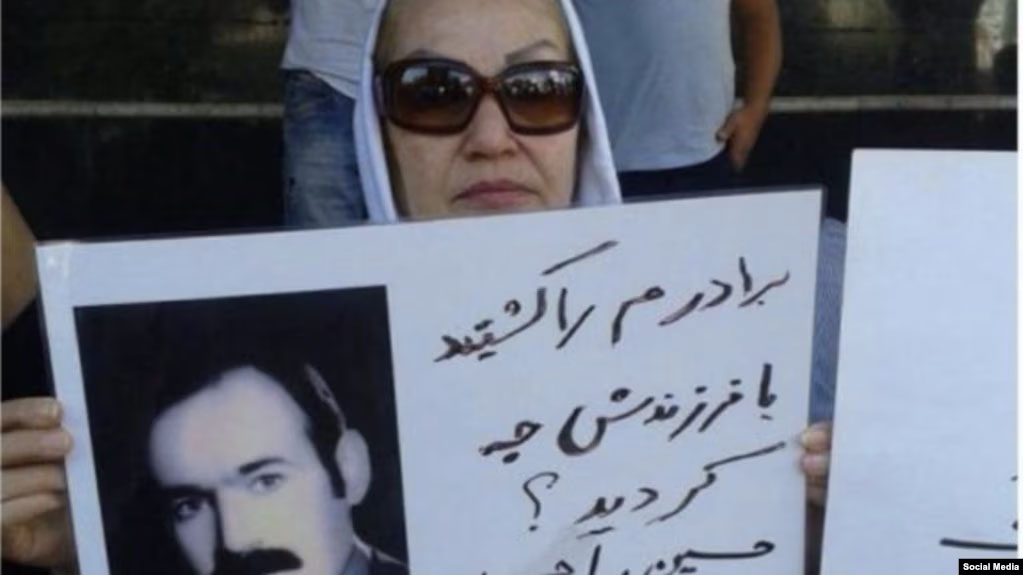 برادرم را کشتید
با فرزندش چه
کردید؟
حسین
Social Media